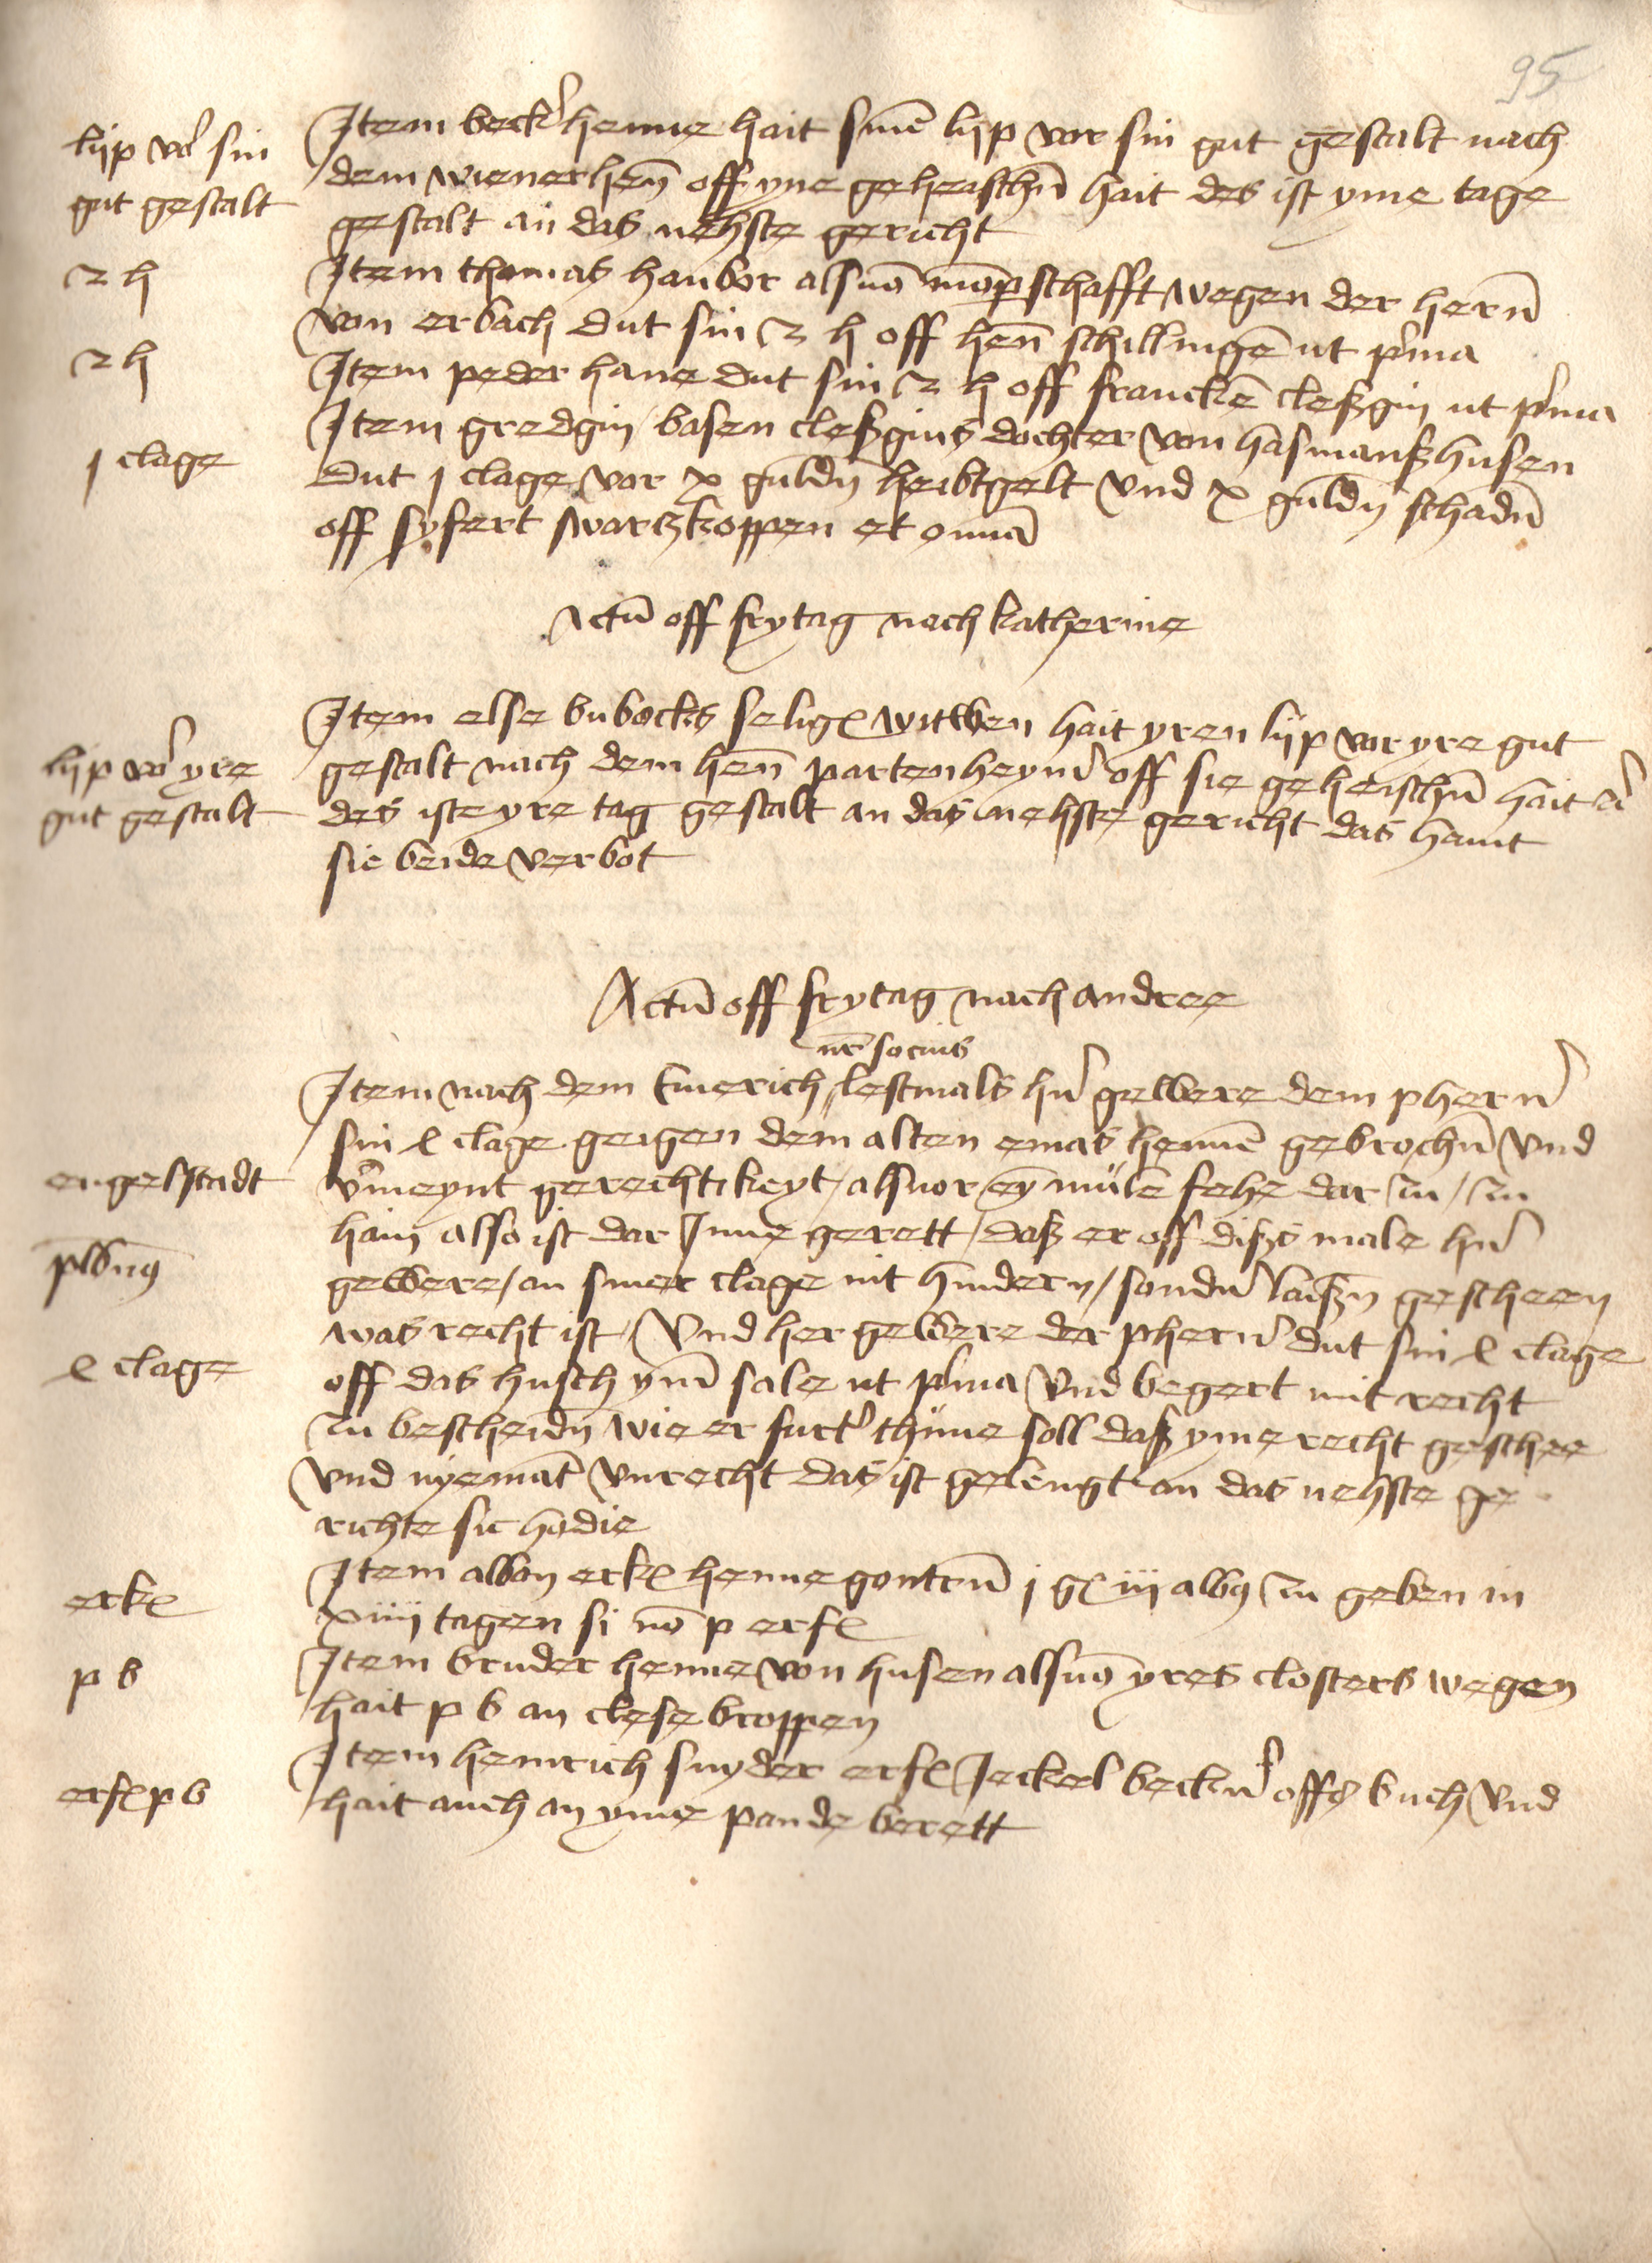 95
lijp vor sin
gut gestalt
Item becker henne hait sine lijp vor sin gut gestalt nach
dem wienerhen off yne geheischn hait des ist yme tage
gestalt an das nehste gericht
2 h
Item thomas haubor alsuo mopschafft wegen der hern
von erbach dut sin 2 h off hen schillinge ut prima
2 h
Item peder hane dut sin 2 h off francke cleßgin ut prima
Item gredgin basen cleßgins dochter von hasmanßhusen
j clage
dut j clage vor x guldn heibtgelt vnd x guldn schadn
off syfert swartzkoppen et omia
Actu off frytag nach katherine
Item else bubocks selige witwen hait yren lijp vor yre gut
lijp vor yre
gestalt nach dem hen partenheymer off sie geheischn hait
gut gestalt
des ist yre tag gestalt an das nehste gericht das haint
sie beide verbot
Actu off frytag nach andree
nr socius
Item nach dem Emerich lestmals her gewere dem pherner
sin l clage geigen dem alten emas henne gebrochn vnd
engelstadt
vermeynt gerechtikeyt alsuor ey mule fehe dar zu zu
hain also ist dar Inne gerett daß er off dißs male her
plbnus
gewere an siner clage nit hindern sonder laißn gescheen
was recht ist Vnd her gewere der pherner dut sin l clage
l clage
off das husch yme sale ut prima vnd begert mit recht
zu bescheidn wie er furter thune soll daß yme recht geschee
vnd nyemant vnrecht das ist gelengt an das nehste ge
richte sic hodie
erk
Item abbon erk henne gontru j g iij albus zu geben in
xiiij tagen si no p erf
p b
Item bruder henne von husen alsuo yres closters wegen
hait p b an clese broppen
erf p b
Item heinrich snyder erf Jeckel beckern offs buch vnd
hait auch an yme pande berett